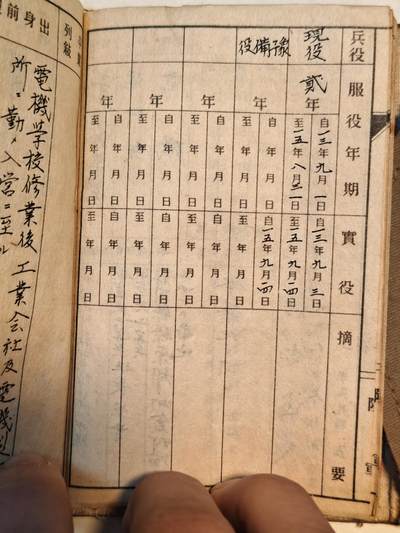 兵役 服役年期 實役 摘要
現役 貳年
自一三年九月一日 自一三年九月三日
至一五年八月三一日 至一五年九月一四日
豫備役 年
自一五年九月一四日
年
自年月日 自年月日
至年月日 至年月日
年
自年月日 自年月日
至年月日 至年月日
年
自年月日 自年月日
至年月日 至年月日
出身前
列級
電機学校修業後工業会社及電機製
所ニ勤メ入営ニ至ル